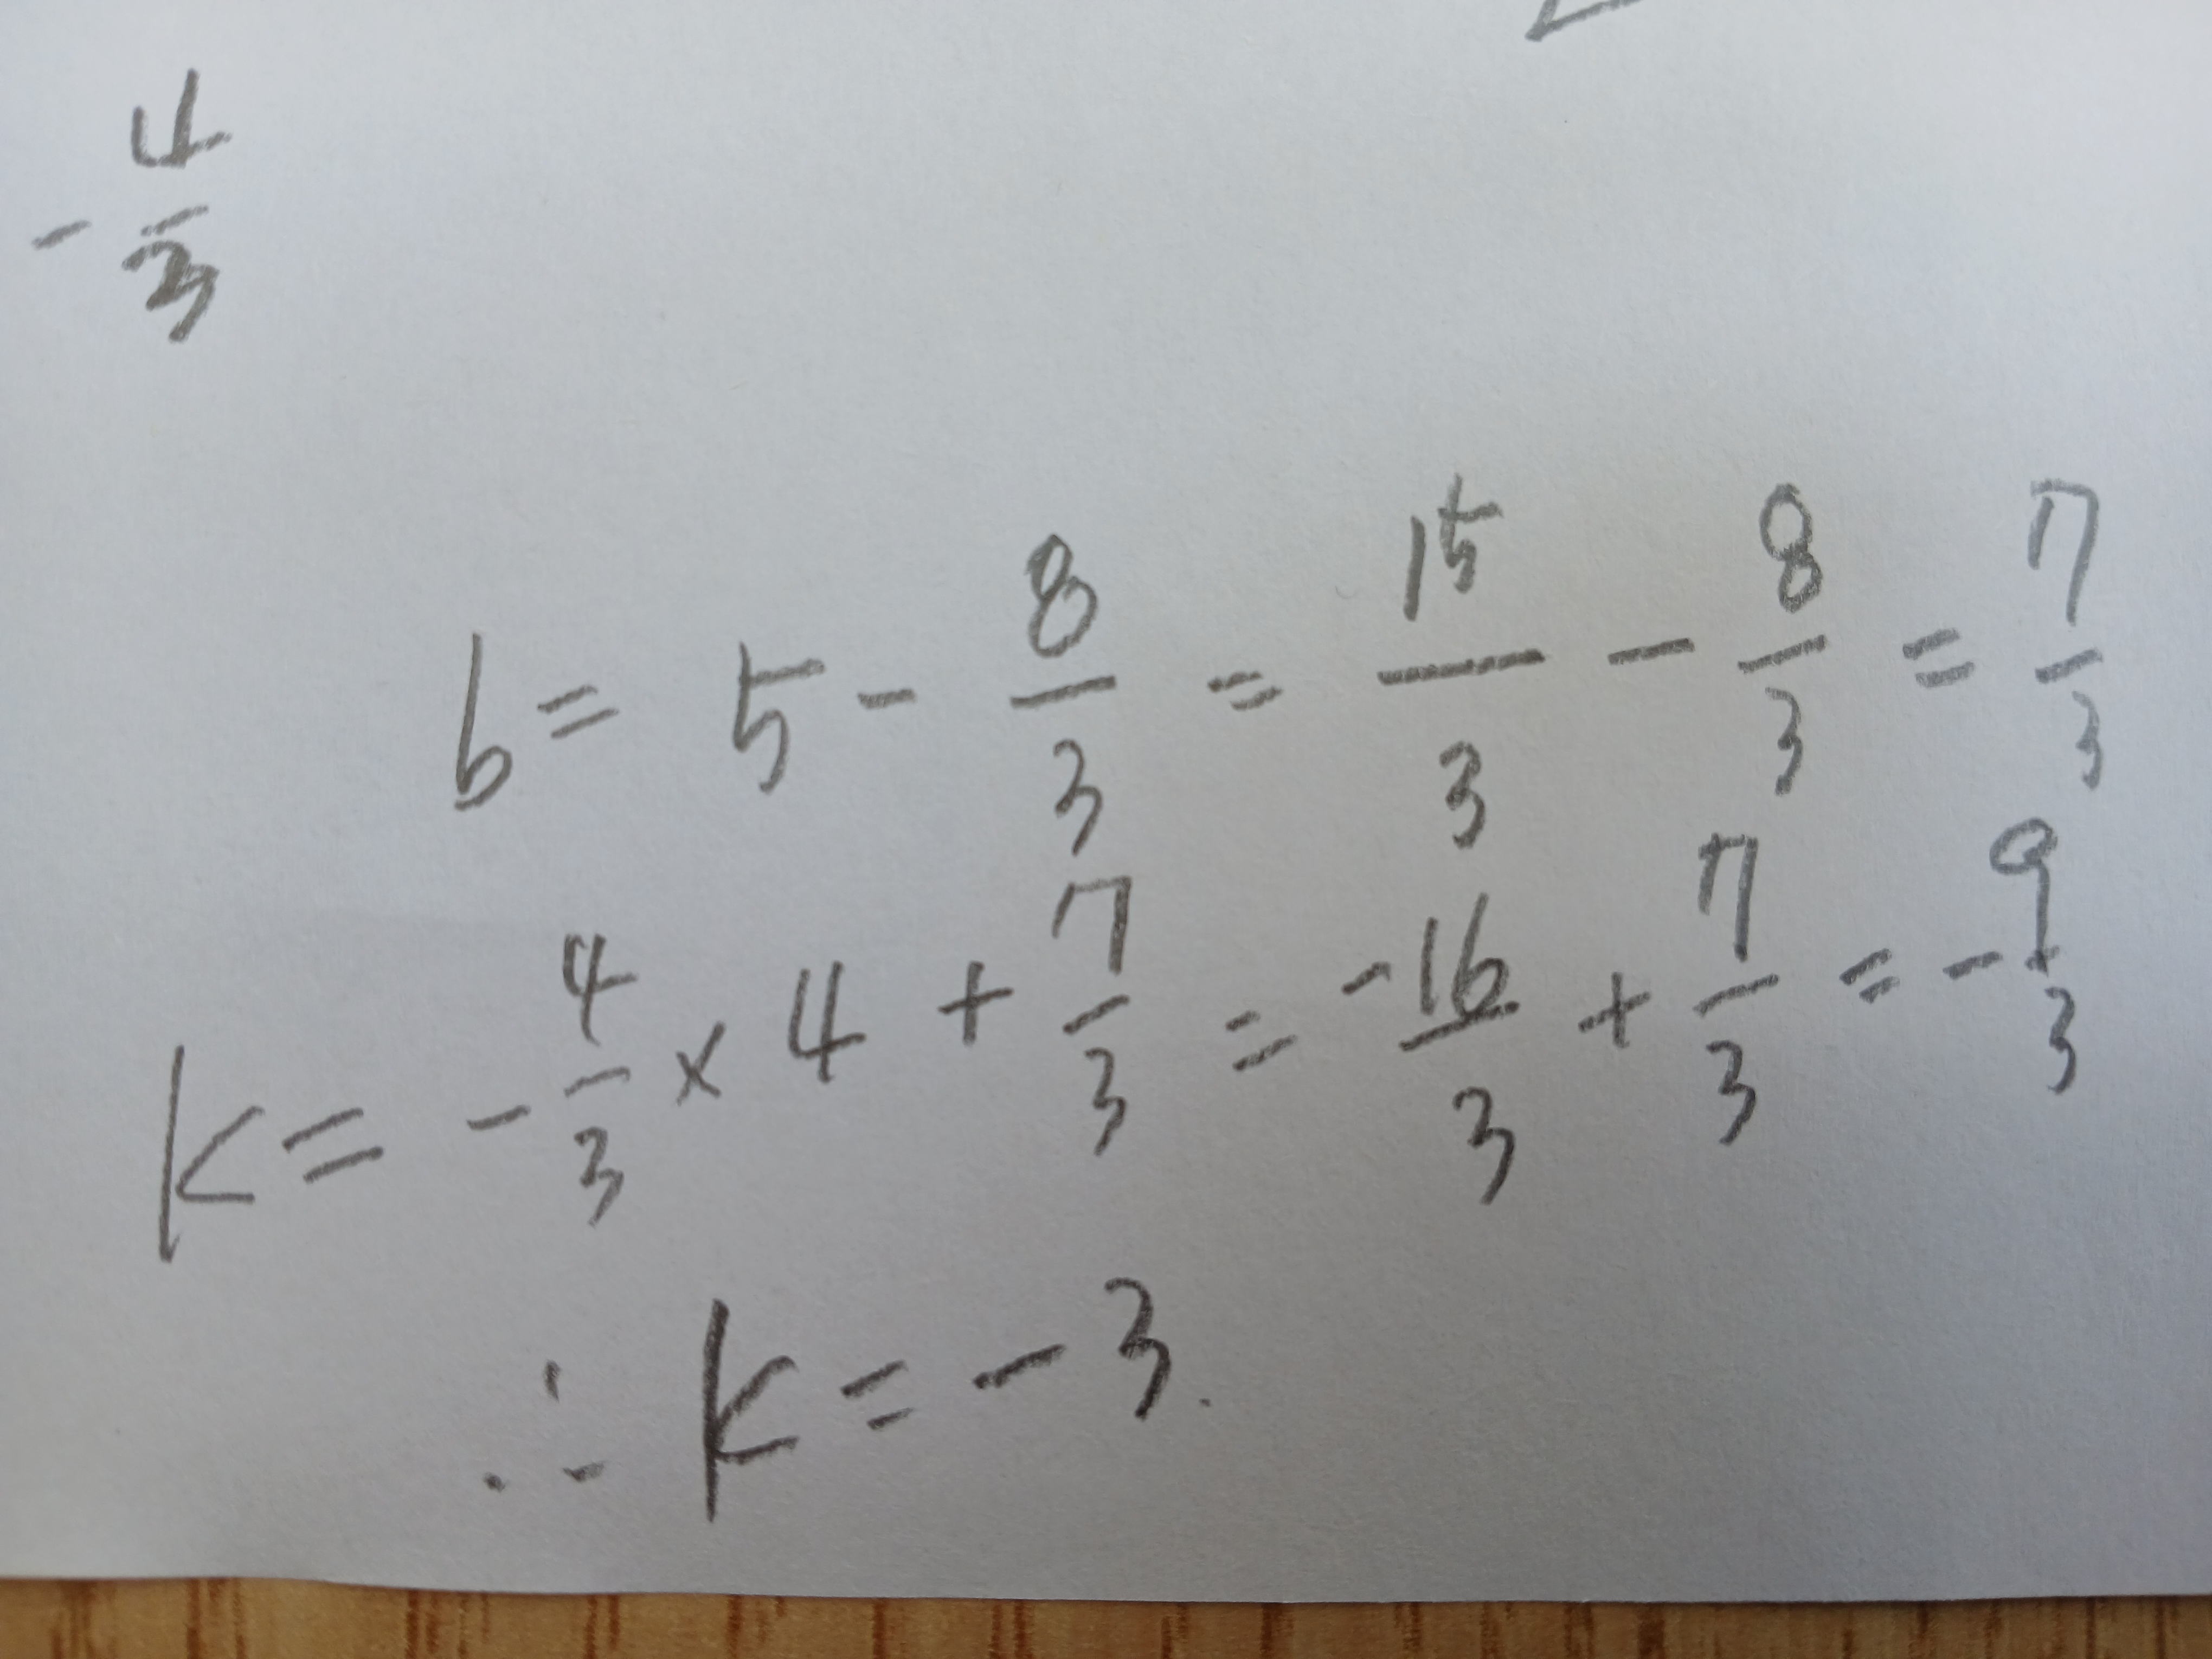 - 4/3
b = 5 - 8/3 = 15/3 - 8/3 = 7/3
k = - 4/3 × 4 + 7/3 = -16/3 + 7/3 = - 9/3
∴ k = -3.